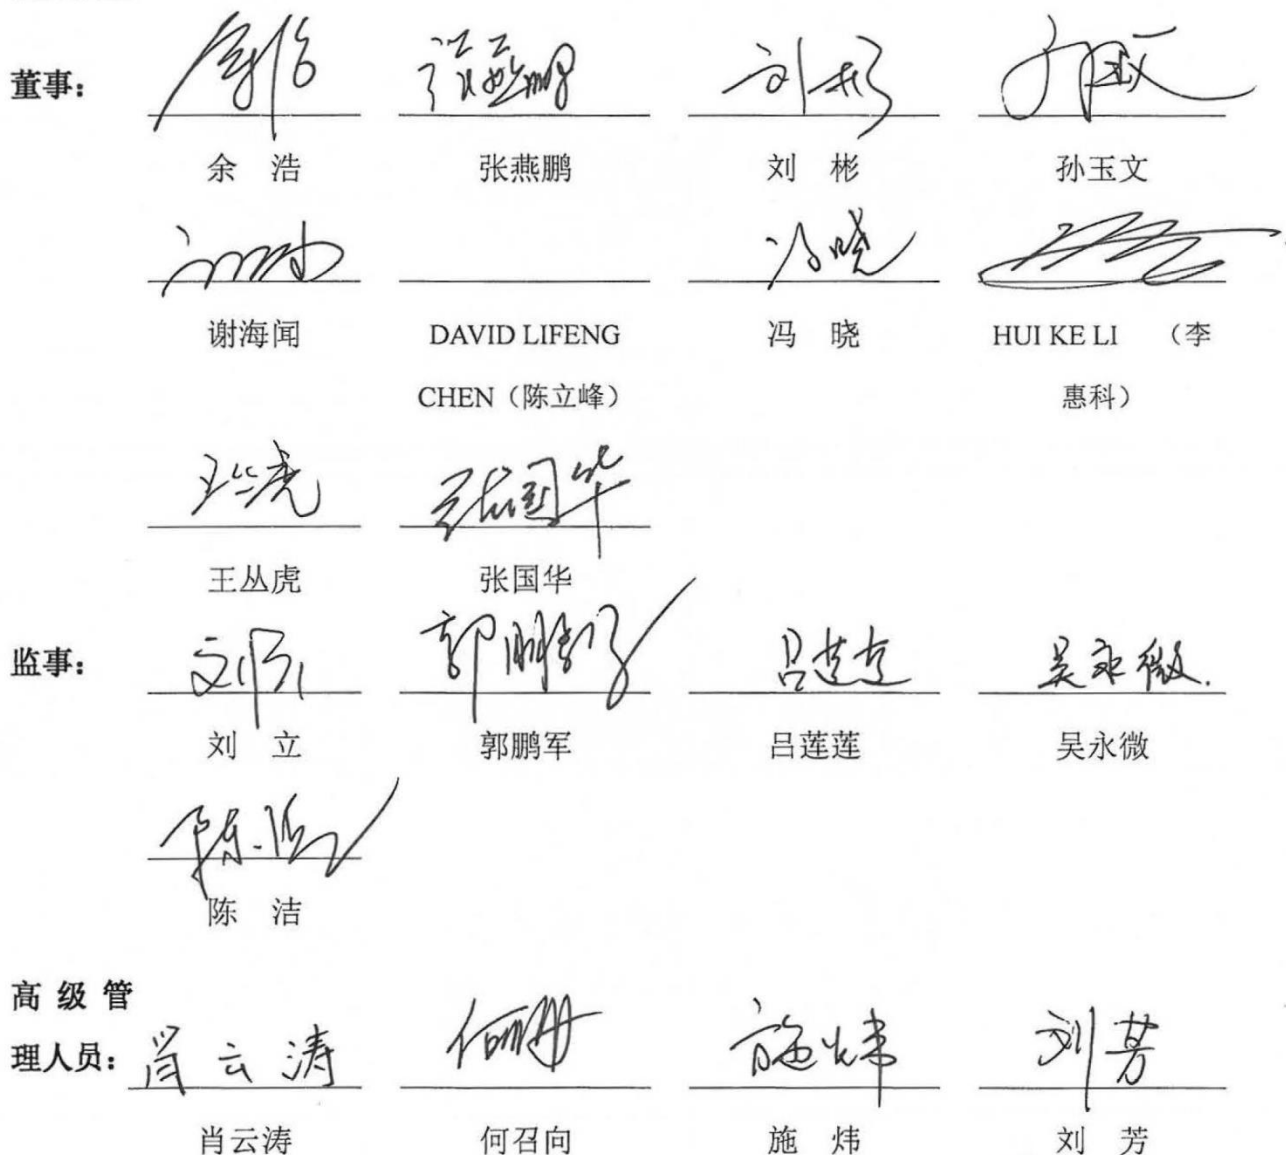 董事：
余 浩 张燕鹏 刘 彬 孙玉文
谢海闻 DAVID LIFENG 冯 晓 HUI KE LI （李
CHEN（陈立峰） 惠科）
王丛虎 张国华
监事：
刘 立 郭鹏军 吕莲莲 吴永微
陈 洁
高 级 管
理人员：
肖云涛 何召向 施 炜 刘 芳